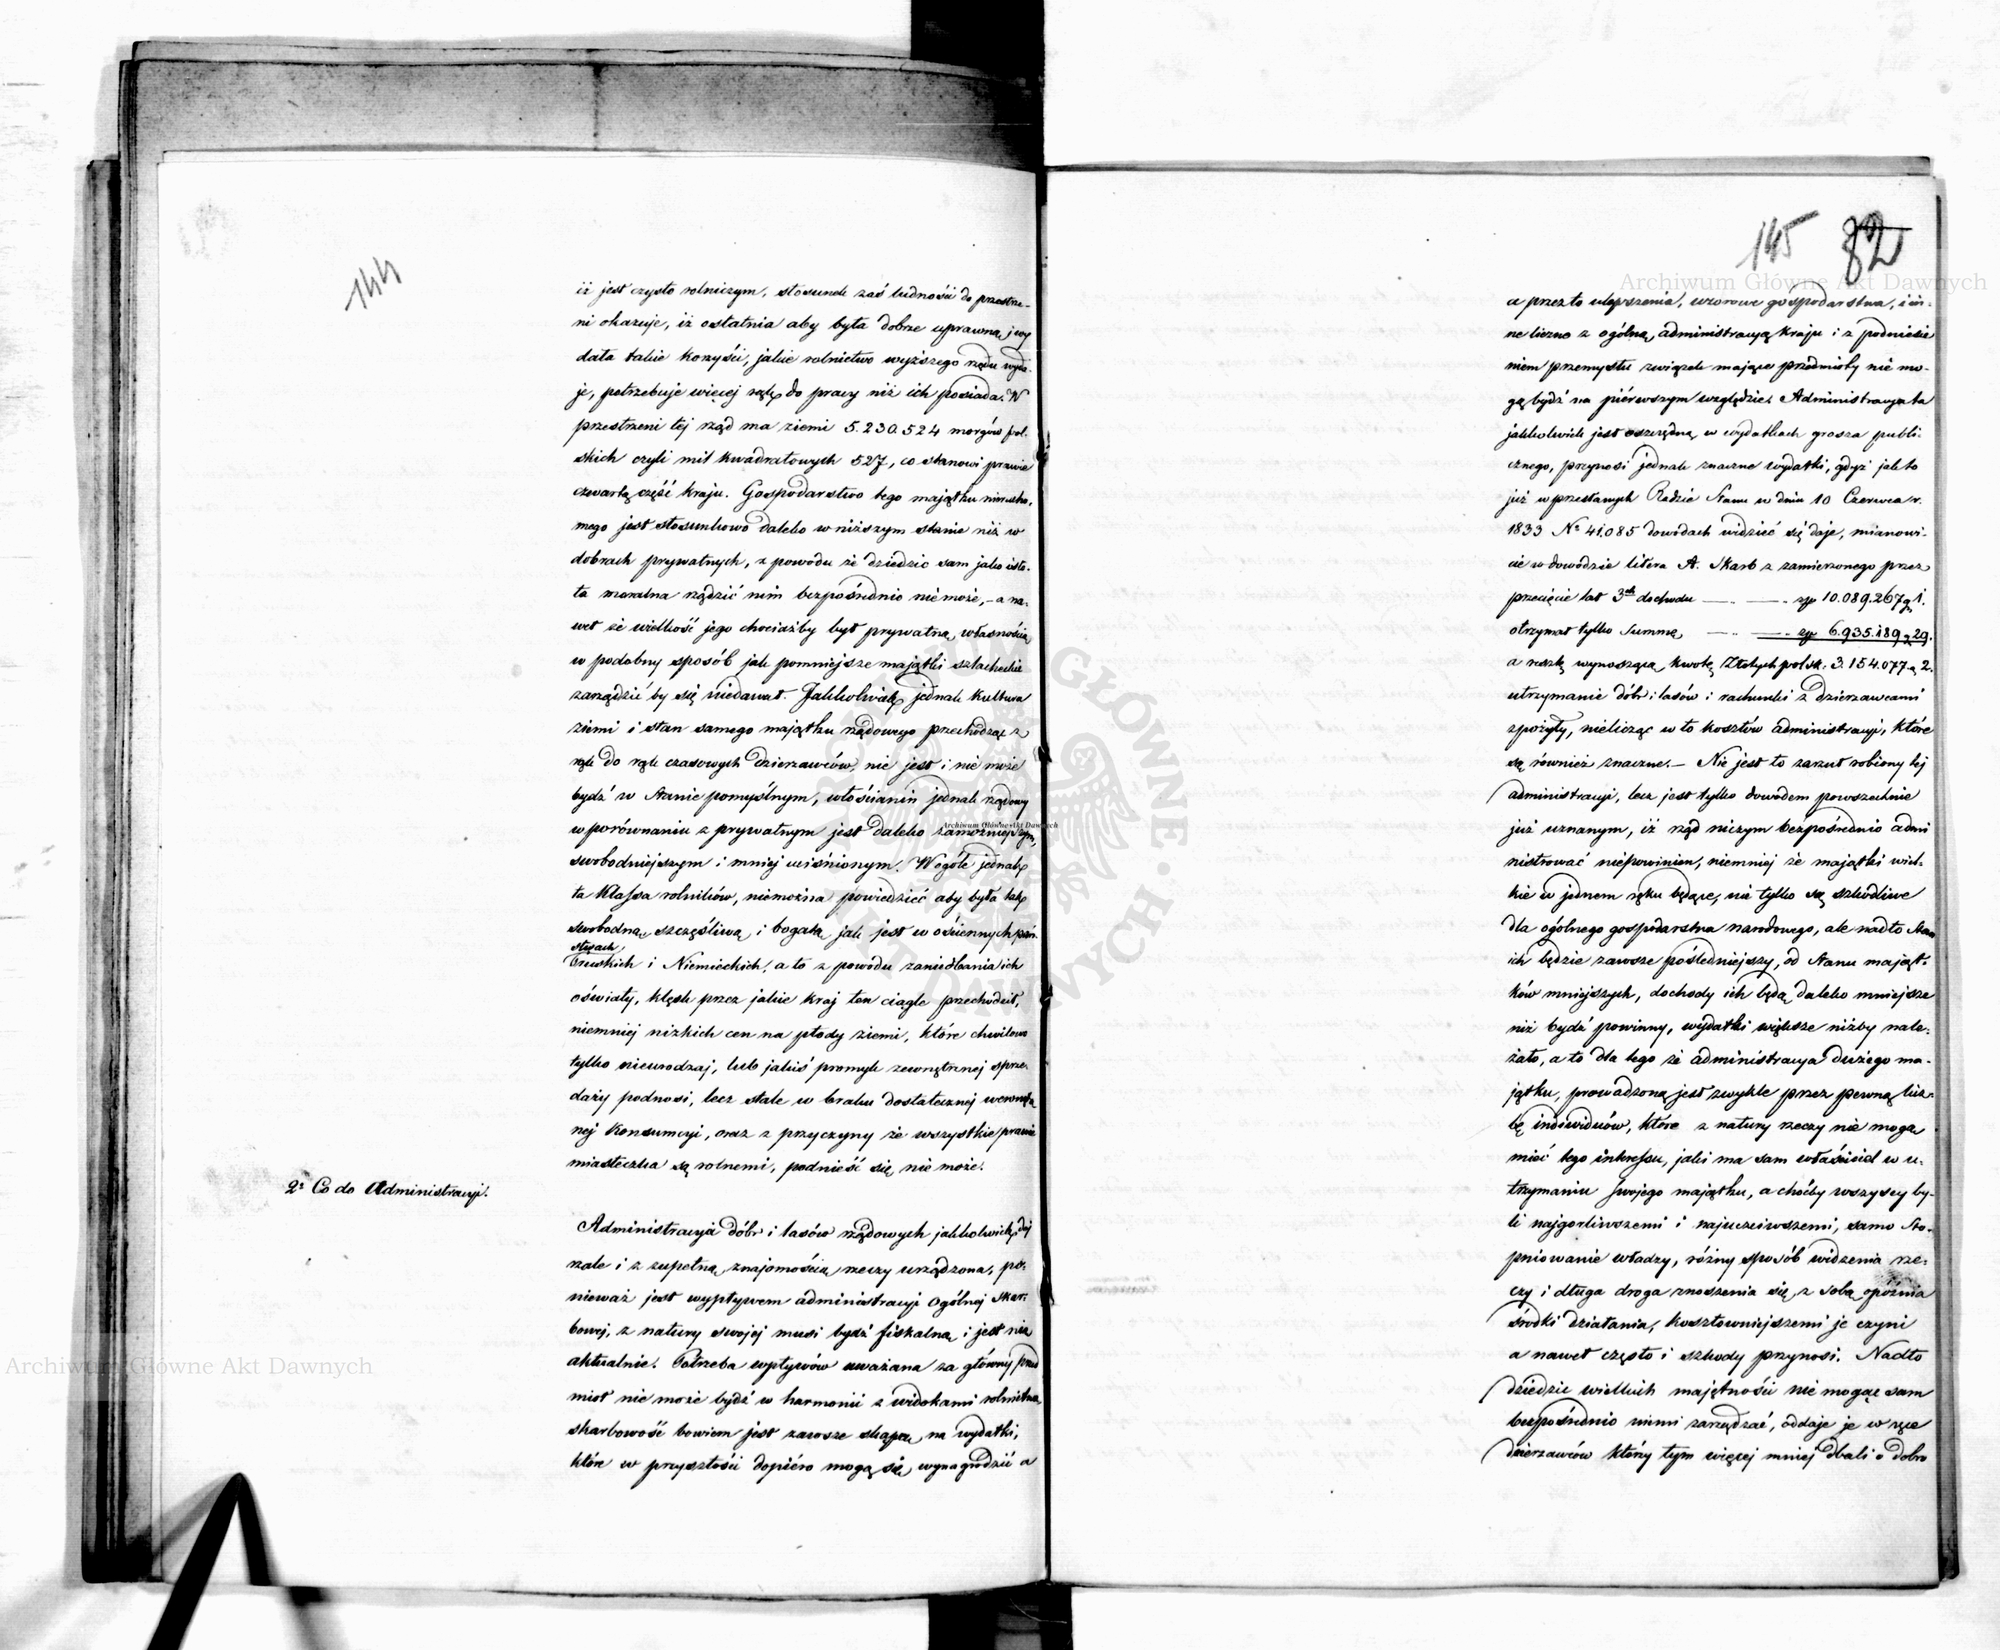 144
iż jest czysto rolniczym, stosunek zaś ludności do przestrze-
ni okazuje, iż ostatnia aby była dobrze uprawną i wy
dała takie korzyści, jakie rolnictwo wyższego rzędu wyda-
je, potrzebuje więcej rąk do pracy niż ich posiada. W
przestrzeni tej rząd ma ziemi 5.230.524 morgów pol-
skich czyli mil kwadratowych 527, co stanowi prawie
czwartą część kraju. Gospodarstwo tego majątku nierucho-
mego jest stosunkowo daleko w niższym stanie niż w
dobrach prywatnych, z powodu że dziedzic sam jako isto-
ta moralna rządzić nim bezpośrednio nie może, - a na-
wet że wielkość jego chociażby był prywatną własnością
w podobny sposób jak pomniejsze majątki szlacheckie
zarządzić by się niedawał. Jakkolwiek jednak kultura
ziemi i stan samego majątku rządowego przechodząc z
rąk do rąk czasowych dzierzawców, nie jest i nie może
bydź w stanie pomyślnym, włościanin jednak rządowy
w porównaniu z prywatnym jest daleko zamożniejszym,
swobodniejszym i mniej uciśnionym. W ogóle jednak
ta klassa rolników, niemożna powiedzieć aby była tak
swobodną, szczęśliwą i bogatą jak jest w ościennych pań-
stwach
Pruskich i Niemieckich, a to z powodu zaniedbania ich
oświaty, klęsk przez jakie kraj ten ciągle przechodził,
niemniej nizkich cen na płody ziemi, które chwilowo
tylko nieurodzaj, lub jakiś promyk zewnętrznej sprze-
daży podnosi, lecz stale w braku dostatecznej wewnętrz
nej konsumcyi, oraz z przyczyny że wszystkie prawie
miasteczka są rolnemi, podnieść się nie może.
2º Co do Administracyi.
Administracya dóbr i lasów rządowych jakkolwiek doj
rzale i z zupełną znajomością rzeczy urządzona, po-
nieważ jest wypływem administracyi ogólnej skar-
bowej, z natury swojej musi bydź fiskalną i jest nią
aktualnie. Potrzeba wpływów uważana za główny przed
miot nie może bydź w harmonii z widokami rolnictwa,
skarbowość bowiem jest zawsze skąpą na wydatki,
które w przyszłości dopiero mogą się wynagrodzić a
145 82
a przez to ulepszenia, wzorowe gospodarstwa, i in-
ne liczne z ogólną administracyą kraju i z podniesie
niem przemysłu związek mające przedmioty nie mo-
gą bydź na pierwszym względzie. Administracya ta
jakkolwiek jest oszczędną w wydatkach grosza publi-
cznego, przynosi jednak znaczne wydatki, gdyż jak to
już w przesłanych Radzie Stanu w dniu 10 Czerwca r.
1833 Nº 41.085 dowodach widzieć się daje, mianowi-
cie w dowodzie litera A. Skarb z zamierzonego przez
przecięcie lat 3ch dochodu — .. — zp 10.089.267 g 1.
otrzymał tylko Summę — .. — zp 6.935.189 g 29.
a resztę wynoszącą kwotę Złotych polsk: 3.154.077 g 2.
utrzymanie dóbr i lasów i rachunki z dzierzawcami
zpożyły, nielicząc w to kosztów administracyi, które
są również znaczne. — Nie jest to zarzut robiony tej
administracyi, lecz jest tylko dowodem powszechnie
już uznanym, iż rząd niczym bezpośrednio admi
nistrować niepowinien, niemniej że majątki wiel-
kie w jednem ręku będące, nie tylko są szkodliwe
dla ogólnego gospodarstwa narodowego, ale nadto stan
ich będzie zawsze pośledniejszy, od stanu mająt-
ków mniejszych, dochody ich będą daleko mniejsze
niż bydź powinny, wydatki większe niżby nale-
żało, a to dla tego że administracya dużego ma-
jątku, prowadzoną jest zwykle przez pewną licz-
bę individuów, które z natury rzeczy nie mogą
mieć tego interessu, jaki ma sam właściciel w u-
trzymaniu swojego majątku, a choćby wszyscy by-
li najgorliwszemi i najuczciwszemi, samo sto-
pniowanie władzy, różny sposób widzenia rze-
czy i długa droga znoszenia się z sobą opóźnia
środki działania, kosztowniejszemi je czyni
a nawet często i szkody przynosi. Nadto
dziedzic wielkich majętności nie mogąc sam
bezpośrednio niemi zarządzać, oddaje je w ręce
dzierzawców który tym więcej mniej dbali o dobro
Archiwum Główne Akt Dawnych
Archiwum Główne Akt Dawnych
Archiwum Główne Akt Dawnych